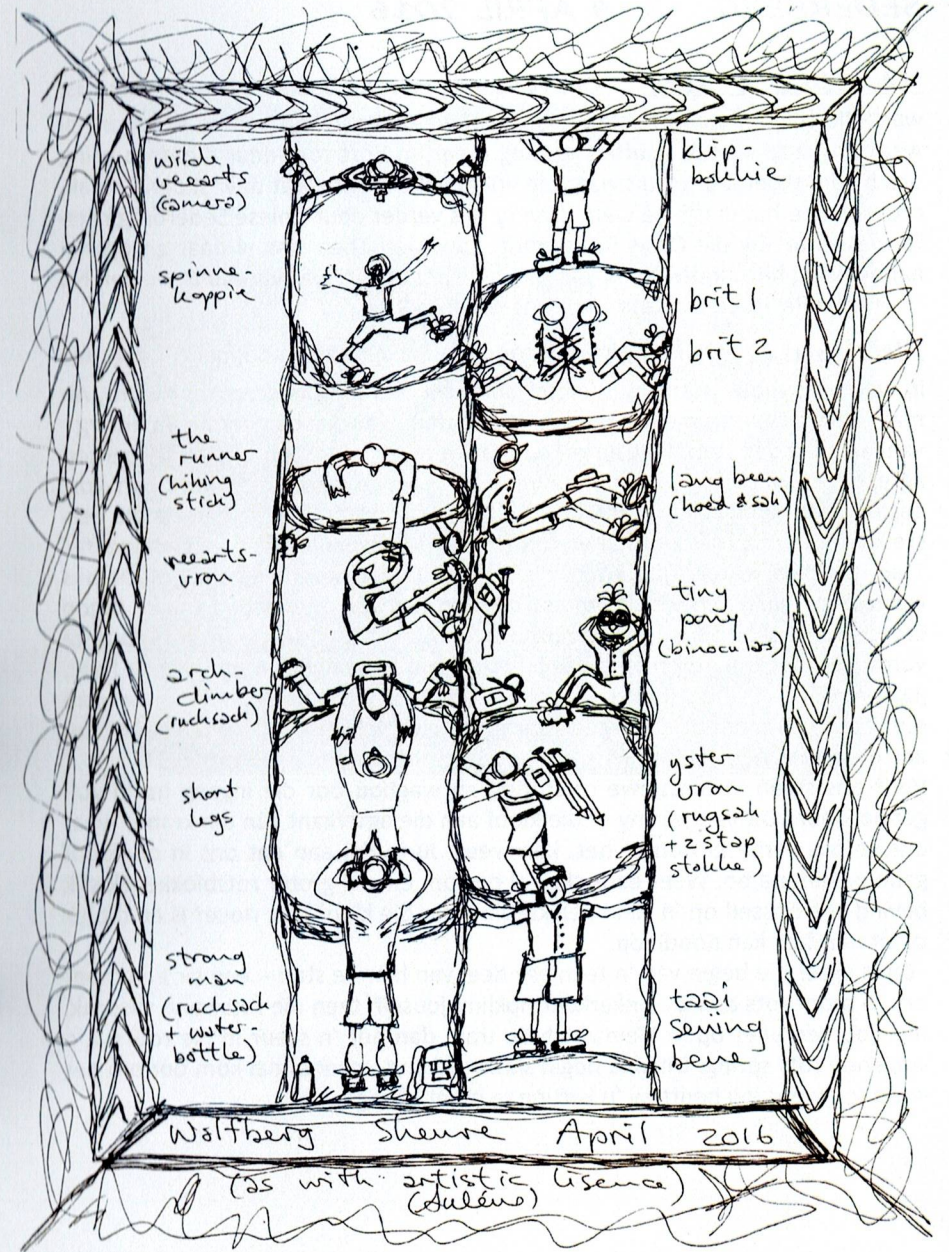 wilde
veearts
(camera)
spinne-
koppie
the
runner
(hiking
stick)
veearts-
vrou
arch-
climber
(rucksack)
short
legs
strong
man
(rucksack
+ water-
bottle)
klip-
bokkie
brit 1
brit 2
lang been
(hoed & sak)
tiny
pony
(binoculas)
yster
vrou
(rugsak
+ 2 stap
stokke)
taai
sening
bene
Wolfberg Sheure April 2016
(as with artistic lisence)